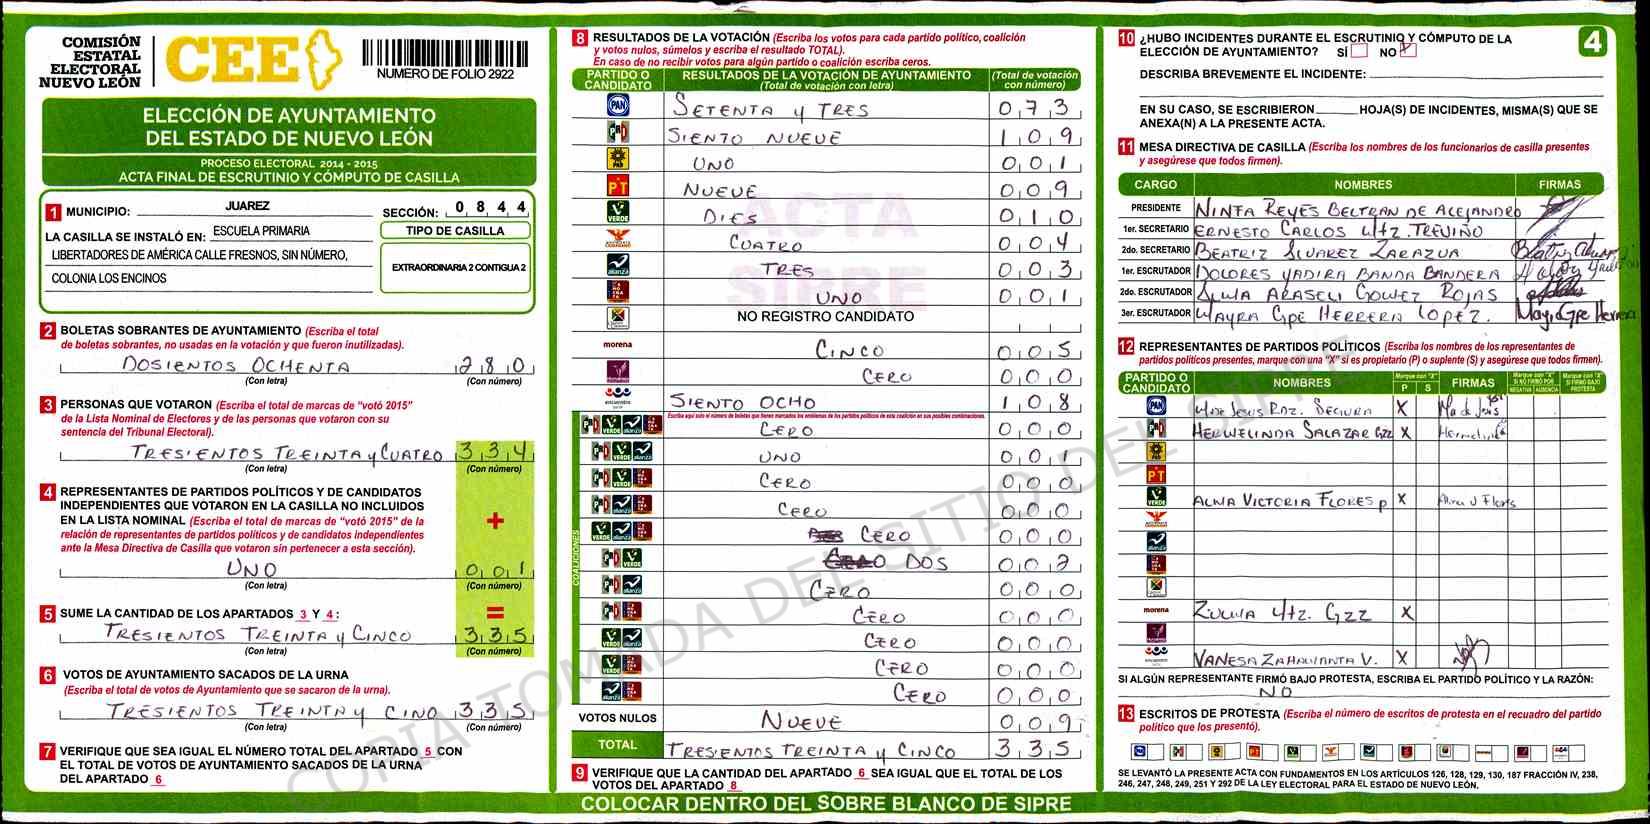 COMISIÓN
ESTATAL
ELECTORAL
NUEVO LEÓN
CEE
NUMERO DE FOLIO 2922
ELECCIÓN DE AYUNTAMIENTO
DEL ESTADO DE NUEVO LEÓN
PROCESO ELECTORAL 2014 - 2015
ACTA FINAL DE ESCRUTINIO Y CÓMPUTO DE CASILLA
1 MUNICIPIO: JUAREZ SECCIÓN: 0 8 4 4
LA CASILLA SE INSTALÓ EN: ESCUELA PRIMARIA
LIBERTADORES DE AMÉRICA CALLE FRESNOS, SIN NÚMERO,
COLONIA LOS ENCINOS
TIPO DE CASILLA
EXTRAORDINARIA 2 CONTIGUA 2
2 BOLETAS SOBRANTES DE AYUNTAMIENTO (Escriba el total
de boletas sobrantes, no usadas en la votación y que fueron inutilizadas).
DOSIENTOS OCHENTA 2 8 0
(Con letra) (Con número)
3 PERSONAS QUE VOTARON (Escriba el total de marcas de “votó 2015”
de la Lista Nominal de Electores y de las personas que votaron con su
sentencia del Tribunal Electoral).
TRESIENTOS TREINTA y CUATRO 3 3 4
(Con letra) (Con número)
4 REPRESENTANTES DE PARTIDOS POLÍTICOS Y DE CANDIDATOS
INDEPENDIENTES QUE VOTARON EN LA CASILLA NO INCLUIDOS
EN LA LISTA NOMINAL (Escriba el total de marcas de “votó 2015” de la
relación de representantes de partidos políticos y de candidatos independientes
ante la Mesa Directiva de Casilla que votaron sin pertenecer a esta sección).
+
UNO 0 0 1
(Con letra) (Con número)
5 SUME LA CANTIDAD DE LOS APARTADOS 3 Y 4 : =
TRESIENTOS TREINTA y CINCO 3 3 5
(Con letra) (Con número)
6 VOTOS DE AYUNTAMIENTO SACADOS DE LA URNA
(Escriba el total de votos de Ayuntamiento que se sacaron de la urna).
TRESIENTOS TREINTA y CINO 3 3 5
(Con letra) (Con número)
7 VERIFIQUE QUE SEA IGUAL EL NÚMERO TOTAL DEL APARTADO 5 CON
EL TOTAL DE VOTOS DE AYUNTAMIENTO SACADOS DE LA URNA
DEL APARTADO 6
8 RESULTADOS DE LA VOTACIÓN (Escriba los votos para cada partido político, coalición
y votos nulos, súmelos y escriba el resultado TOTAL).
En caso de no recibir votos para algún partido o coalición escriba ceros.
PARTIDO O CANDIDATO RESULTADOS DE LA VOTACIÓN DE AYUNTAMIENTO (Total de votación con letra) (Total de votación con número)
PAN SETENTA y TRES 0 7 3
PRI SIENTO NUEVE 1 0 9
PRD UNO 0 0 1
PT NUEVE 0 0 9
VERDE DIES 0 1 0
CUATRO 0 0 4
alianza TRES 0 0 3
UNO 0 0 1
NO REGISTRO CANDIDATO
morena CINCO 0 0 5
CERO 0 0 0
encuentro SIENTO OCHO 1 0 8
Escriba aquí solo el número de boletas que tienen marcados los emblemas de los partidos políticos de esta coalición en sus posibles combinaciones.
COALICIONES
CERO 0 0 0
UNO 0 0 1
CERO 0 0 0
CERO 0 0 0
CERO 0 0 0
DOS 0 0 2
CERO 0 0 0
CERO 0 0 0
CERO 0 0 0
CERO 0 0 0
CERO 0 0 0
VOTOS NULOS NUEVE 0 0 9
TOTAL TRESIENTOS TREINTA y CINCO 3 3 5
9 VERIFIQUE QUE LA CANTIDAD DEL APARTADO 6 SEA IGUAL QUE EL TOTAL DE LOS
VOTOS DEL APARTADO 8
ACTA
SIPRE
COPIA TOMADA DEL SITIO DEL SIPRE
COLOCAR DENTRO DEL SOBRE BLANCO DE SIPRE
4
10 ¿HUBO INCIDENTES DURANTE EL ESCRUTINIO Y CÓMPUTO DE LA
ELECCIÓN DE AYUNTAMIENTO? SÍ NO X
DESCRIBA BREVEMENTE EL INCIDENTE:
EN SU CASO, SE ESCRIBIERON HOJA(S) DE INCIDENTES, MISMA(S) QUE SE
ANEXA(N) A LA PRESENTE ACTA.
11 MESA DIRECTIVA DE CASILLA (Escriba los nombres de los funcionarios de casilla presentes
y asegúrese que todos firmen).
CARGO NOMBRES FIRMAS
PRESIDENTE NINFA REYES BELTRAN DE ALEJANDRO
1er. SECRETARIO ERNESTO CARLOS TREVIÑO
2do. SECRETARIO BEATRIZ ZARAZUA
1er. ESCRUTADOR DOLORES YADIRA BANDA BANDERA
2do. ESCRUTADOR ARASELI GOMEZ ROJAS
3er. ESCRUTADOR MAYRA GPE HERRERA LOPEZ.
12 REPRESENTANTES DE PARTIDOS POLÍTICOS (Escriba los nombres de los representantes de
partidos políticos presentes, marque con una “X” si es propietario (P) o suplente (S) y asegúrese que todos firmen).
PARTIDO O CANDIDATO NOMBRES Marque con “X” P S FIRMAS Marque con “X” SI NO FIRMÓ POR NEGATIVA AUSENCIA Marque con “X” SI FIRMÓ BAJO PROTESTA
PAN JESUS RDZ. SEGURA X
PRI HERMELINDA SALAZAR GZZ X
PRD
PT
VERDE ALMA VICTORIA FLORES P X
alianza
morena GZZ X
encuentro VANESA V. X
SI ALGÚN REPRESENTANTE FIRMÓ BAJO PROTESTA, ESCRIBA EL PARTIDO POLÍTICO Y LA RAZÓN:
NO
13 ESCRITOS DE PROTESTA (Escriba el número de escritos de protesta en el recuadro del partido
político que los presentó).
SE LEVANTÓ LA PRESENTE ACTA CON FUNDAMENTOS EN LOS ARTÍCULOS 126, 128, 129, 130, 187 FRACCIÓN IV, 238,
246, 247, 248, 249, 251 Y 292 DE LA LEY ELECTORAL PARA EL ESTADO DE NUEVO LEÓN.